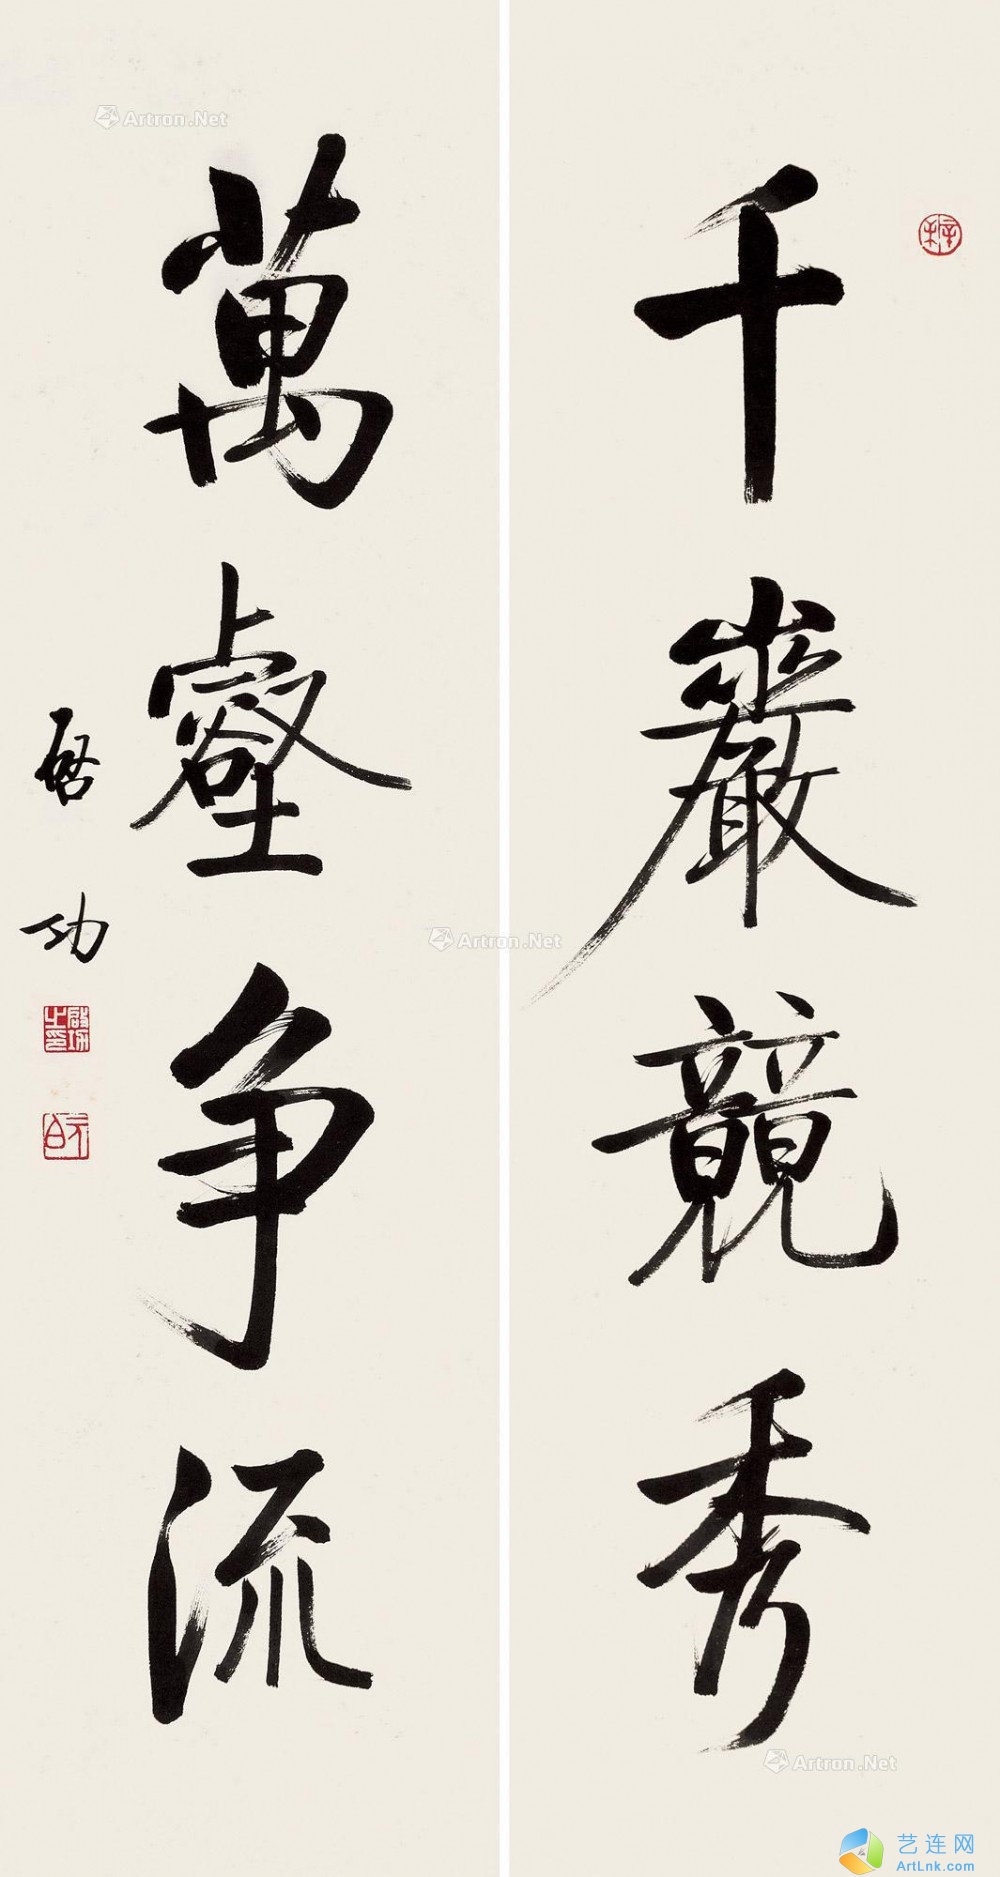 千巖競秀
萬壑争流
启功
啟功之印
元白
Artron.Net
Artron.Net
Artron.Net
艺连网
ArtLnk.com